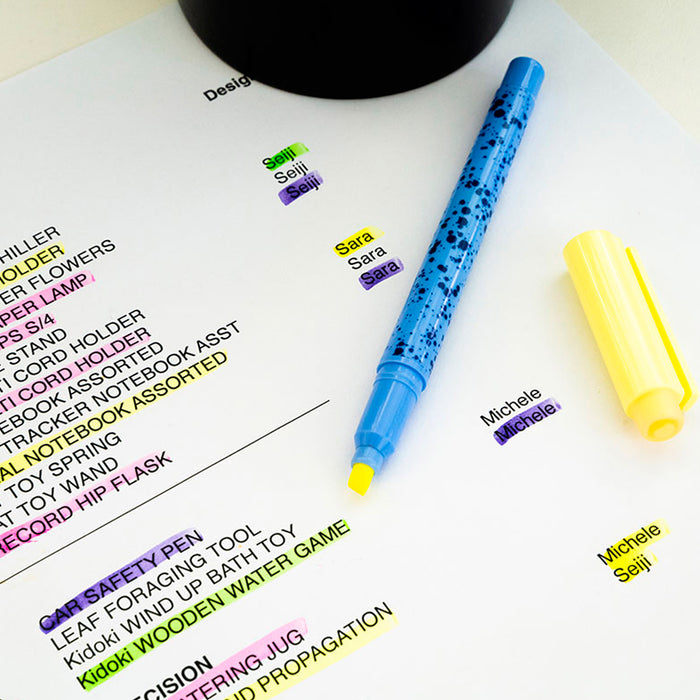 Design
Seiji
Seiji
Seiji
Sara
Sara
Sara
HILLER
HOLDER
ER FLOWERS
PER LAMP
PS S/4
E STAND
TI CORD HOLDER
TI CORD HOLDER
TEBOOK ASSORTED
TRACKER NOTEBOOK ASST
AL NOTEBOOK ASSORTED
TOY SPRING
AT TOY WAND
RECORD HIP FLASK
Michele
Michele
CAR SAFETY PEN
LEAF FORAGING TOOL
Kidoki WIND UP BATH TOY
Kidoki WOODEN WATER GAME
Michele
Seiji
ECISION
TERING JUG
ND PROPAGATION